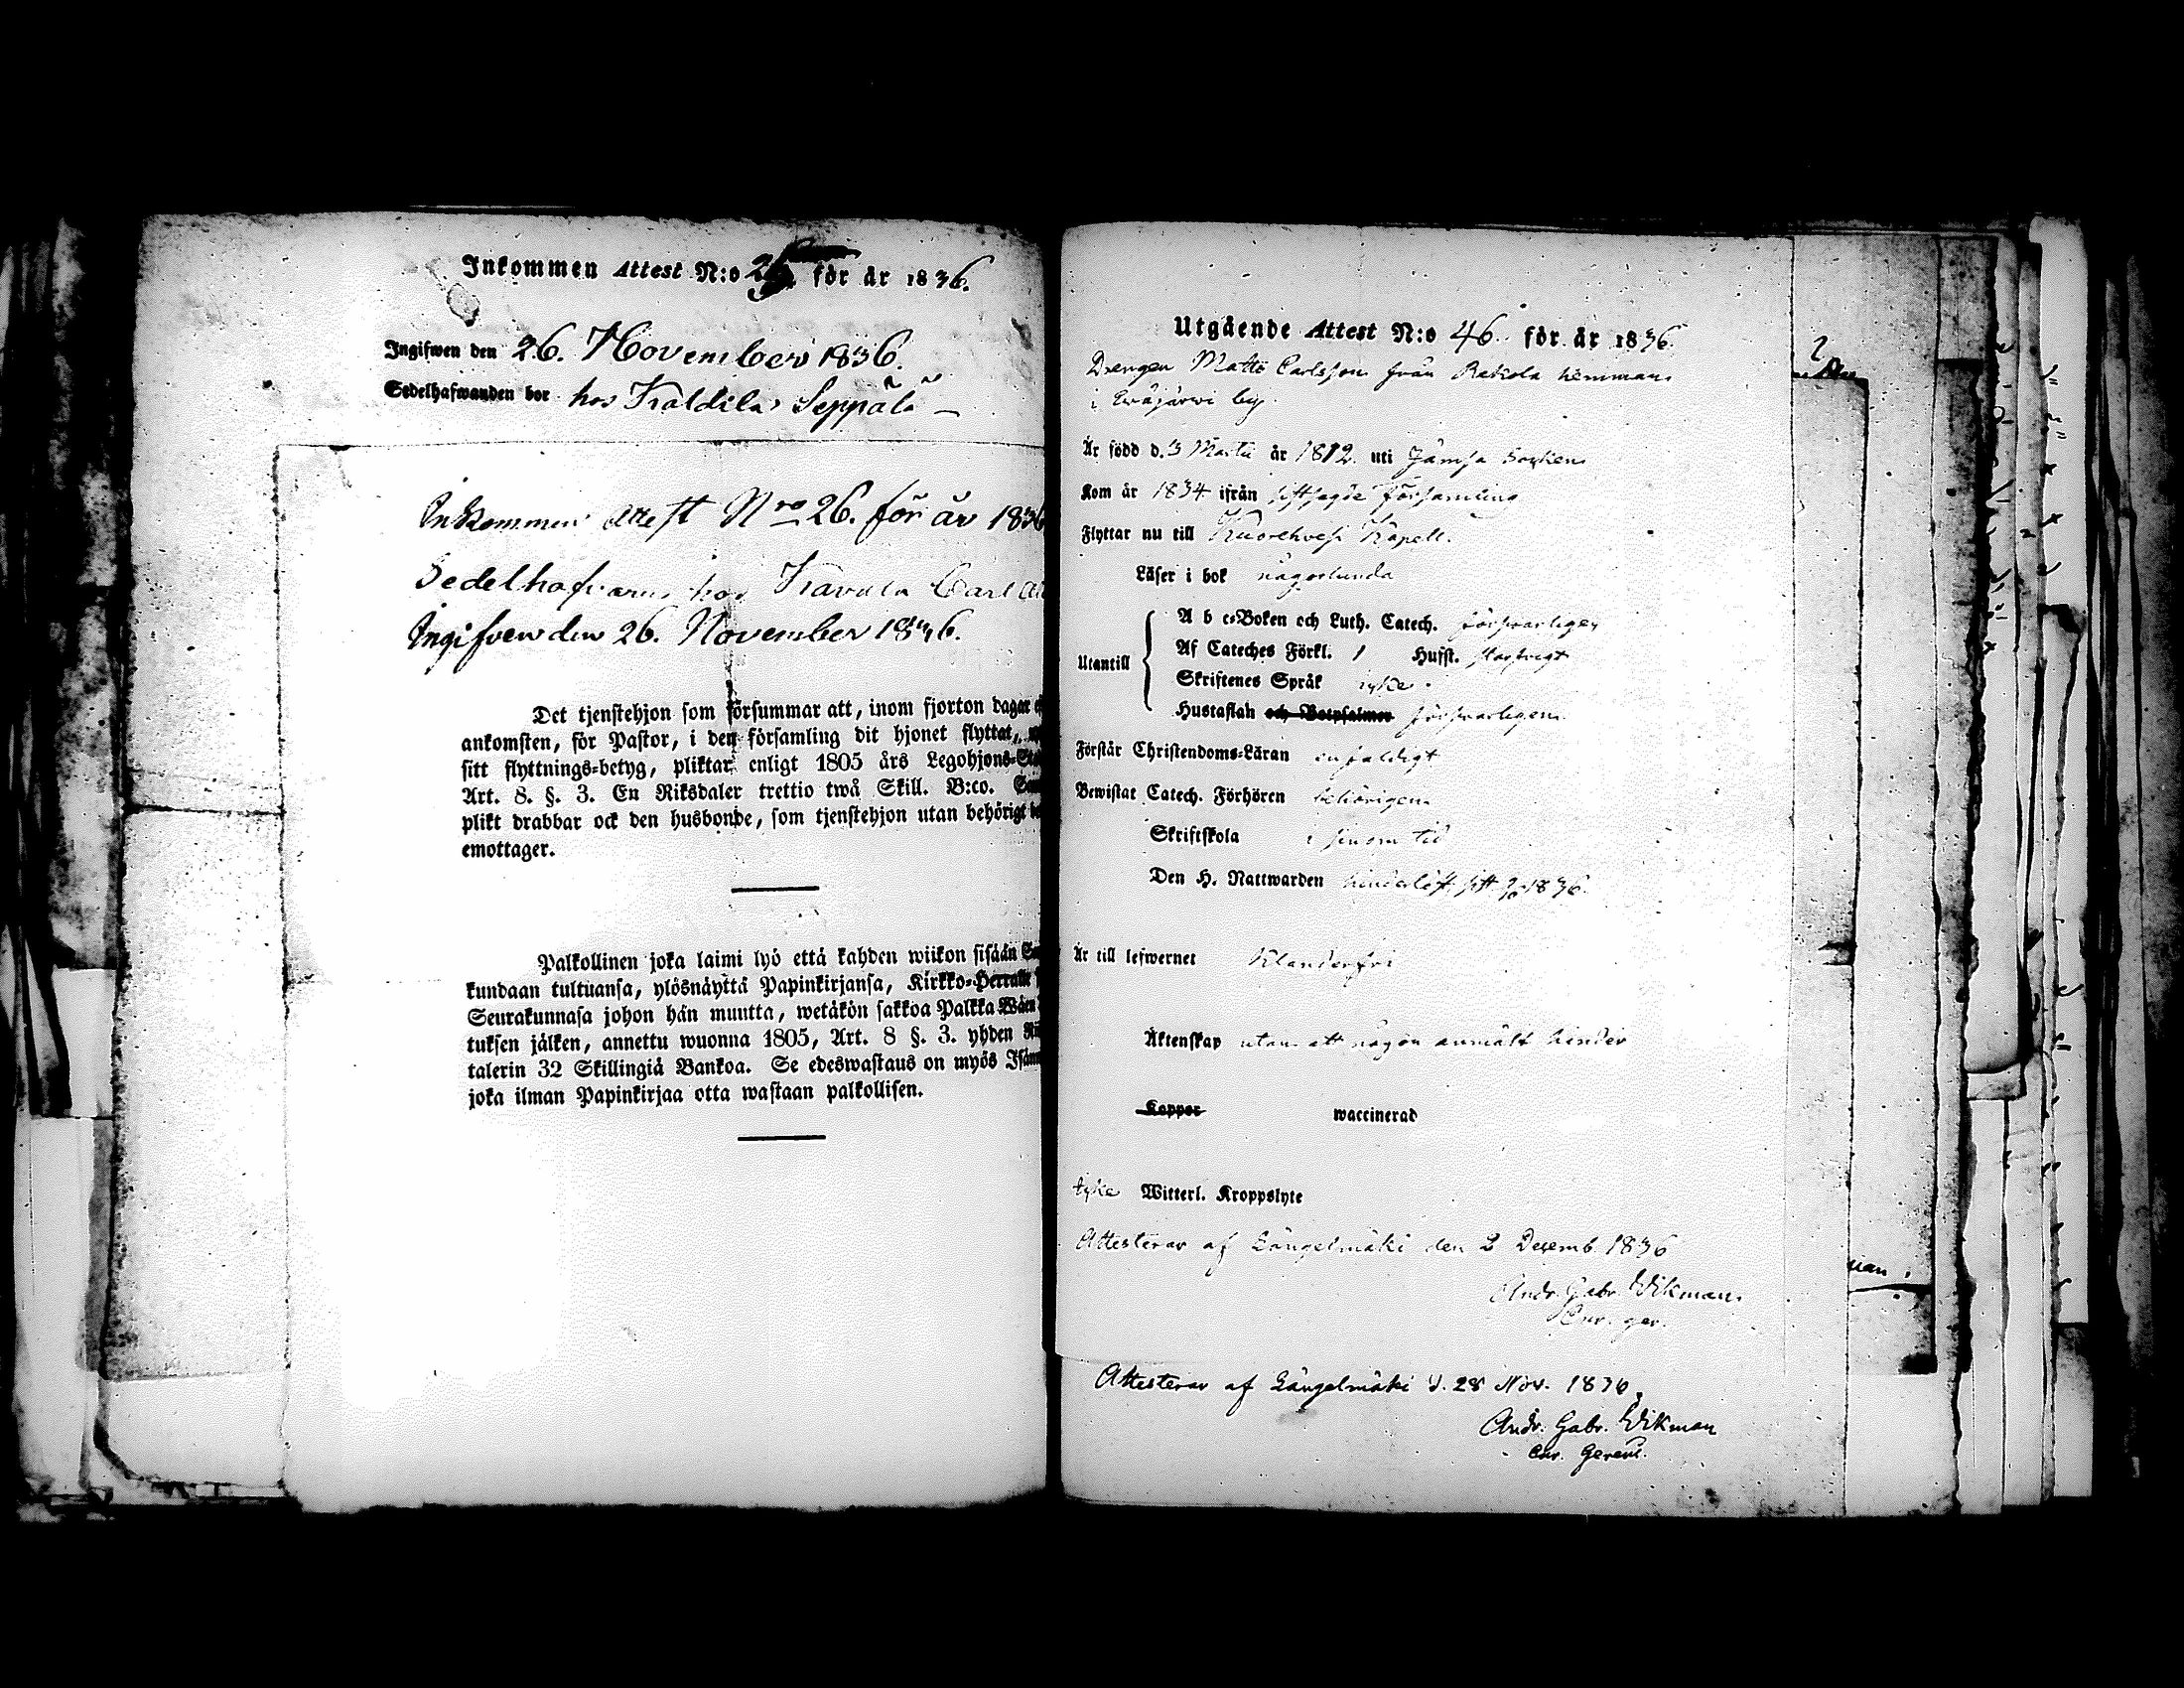 Inkommen Attest N:o 25. för år 1836.
Ingifwen den 26. November 1836.
Sedelhafwanden bor hos Seppälä
Inkommen Attest Nro 26. för år 1836
Sedelhafvaren hos Carl
Ingifven den 26. November 1836.
Det tjenstehjon som försummar att, inom fjorton dagar
ankomsten, för Pastor, i den församling dit hjonet flyttat,
sitt flyttnings-betyg, pliktar enligt 1805 års Legohjons-
Art. 8. §. 3. En Riksdaler trettio twå Skill. B:co.
plikt drabbar ock den husbonde, som tjenstehjon utan behörigt
emottager.
Palkollinen joka laimi lyö että kahden wiikon sisään
kundaan tultuansa, ylösnäyttä Papinkirjansa, Kirkko-Herralle
Seurakunnasa johon hän muutta, wetäkön sakkoa Palkka
tuksen jälken, annettu wuonna 1805, Art. 8 §. 3. yhden
talerin 32 Skillingiä Bankoa. Se edeswastaus on myös
joka ilman Papinkirjaa otta wastaan palkollisen.
Utgående Attest N:o 46 för år 1836.
Drengen Matts Carlsson från Rekola hemman
i Eräjärwi by.
Är född d. 3 Martii år 1812. uti Jämsä Socken
Kom år 1834 ifrån sistsagde Församling
Flyttar nu till Kuorehvesi Kapell.
Läser i bok någorlunda
Utantill
A b c-Boken och Luth. Catech. försvarligen
Af Cateches Förkl. 1 Hufst. slarfvigt
Skriftenes Språk icke
Hustaflan och Botpsalmer försvarligen
Förstår Christendoms-Läran enfaldigt
Bewistat Catech. Förhören behörigen
Skriftskola i sinom tid
Den H. Nattwarden hinderlöst, sist 1836.
Är till lefwernet klanderfri
Äktenskap utan att någon anmält hinder
Koppor waccinerad
icke Witterl. Kroppslyte
Attesterar af Längelmäki den 2 Decemb. 1836
Andr. Gabr. Wikman
Cur. ger.
Attesterar af Längelmäki d. 28 Nov. 1836.
Andr. Gabr. Wikman
Cur. Gerens.